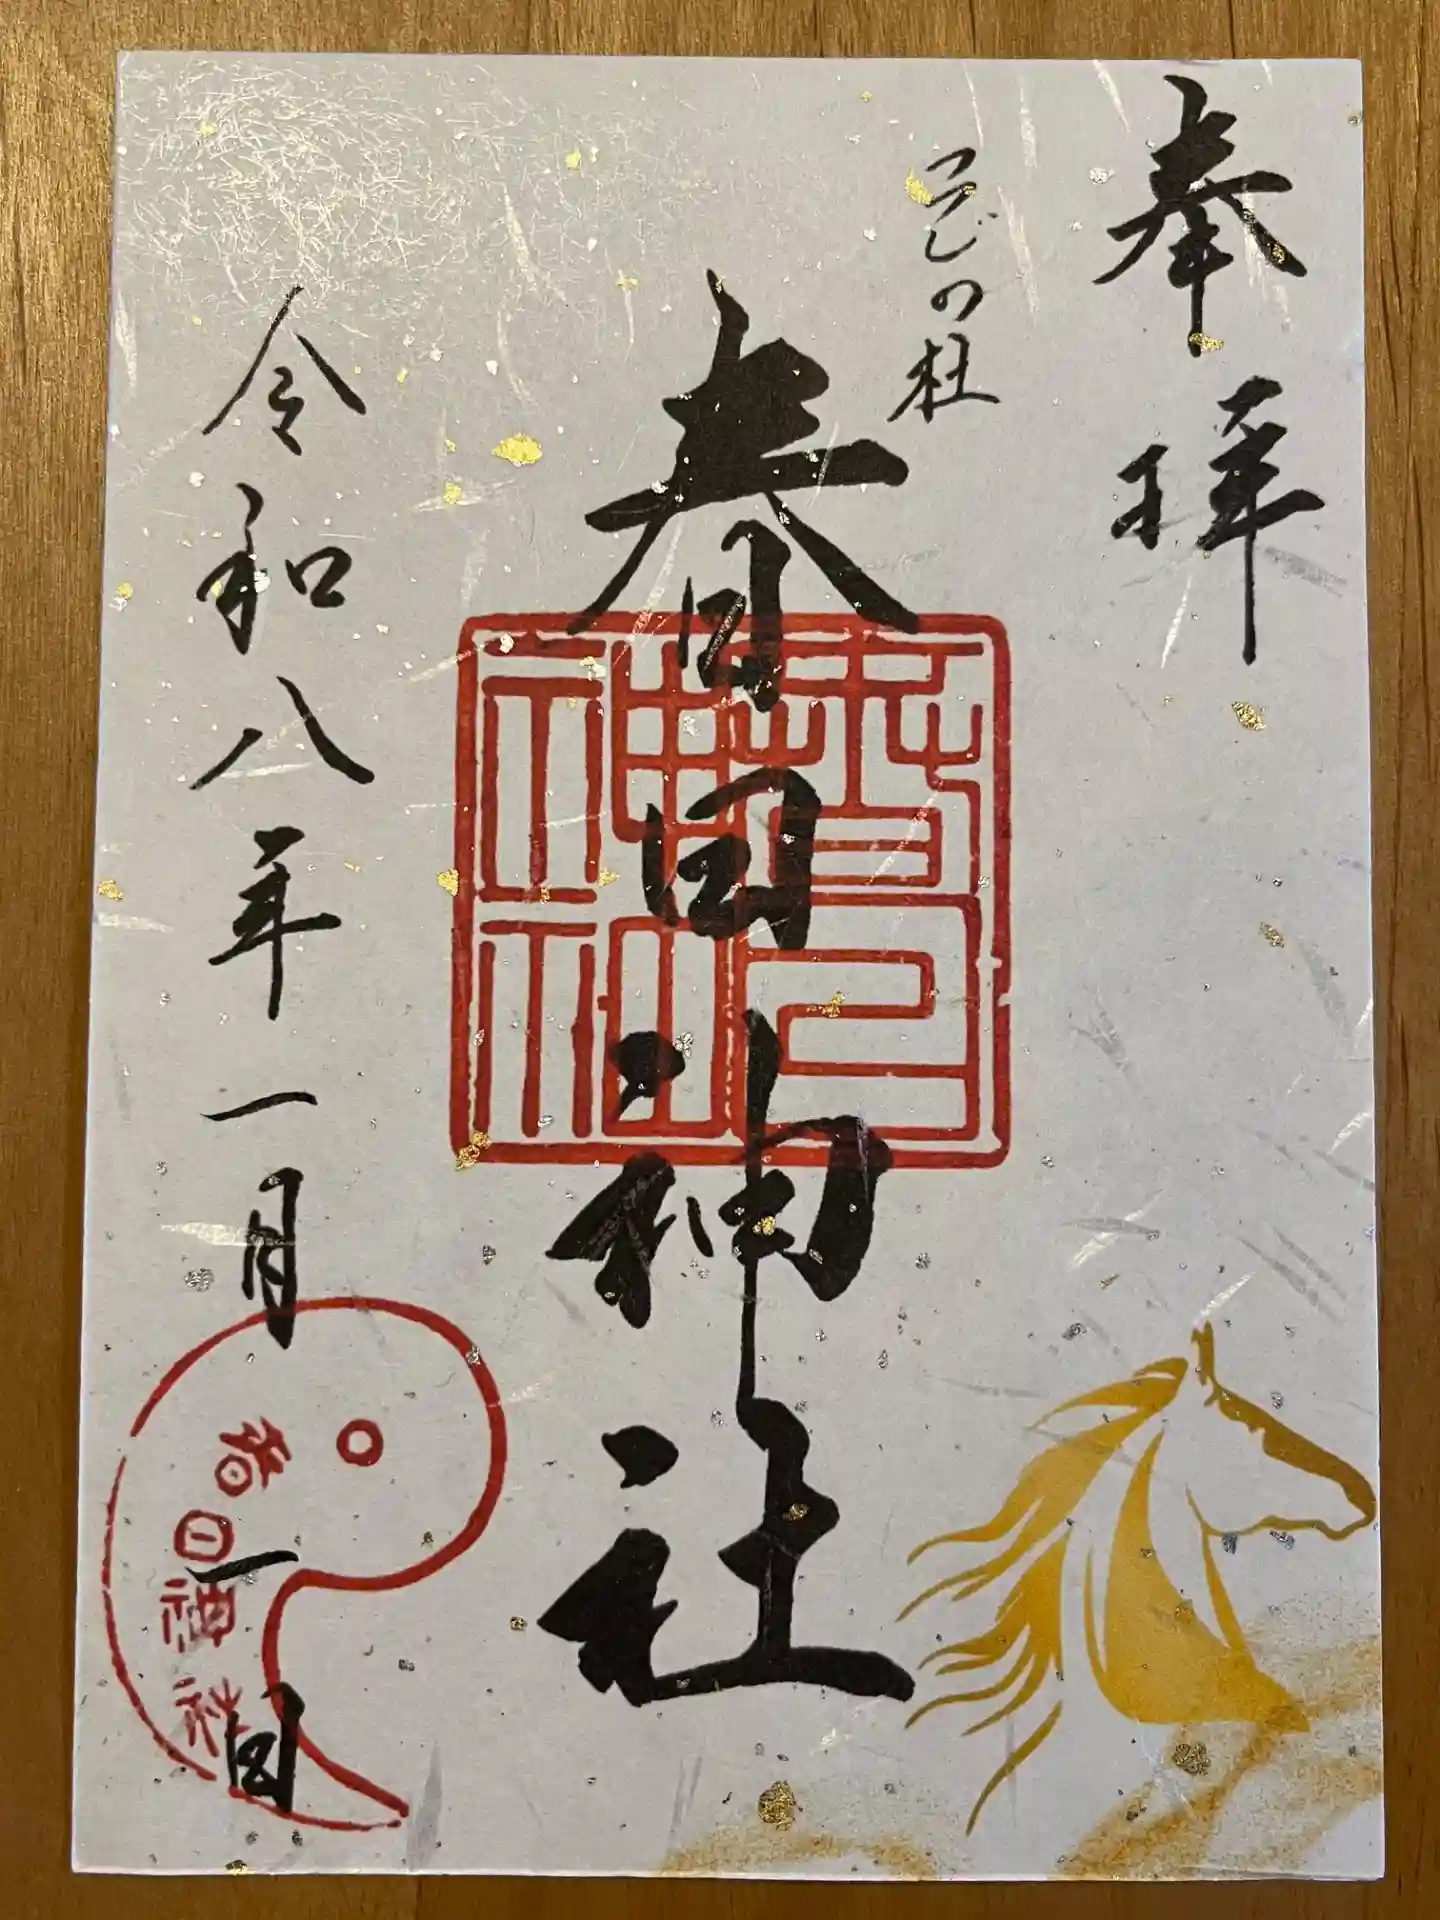 奉拝
ふじの杜
春日神社
春日神社
令和八年一月一日
春日神社